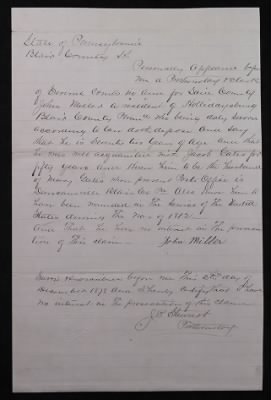 State of Pennsylvania
Blair County SS.
Personally Appeared before
me a Prothonotary & Clerk
of Several Courts in and for Said County
John Miller a resident of Hollidaysburg
Blair County Penna who being duly sworn
according to law doth depose and say
that he is Seventy two years of Age And that
he was well acquainted with Jacob Cates for
fifty years and knew him to be the husband
of Mary Cates whose present Post Office is
Duncansville Blair Co Pa Also knew him to
have been wounded in the service of the United
States during the War of 1812
And that he has no interest in the prosecu-
tion of this claim
John Miller
Sworn & subscribed before me this 2nd day of
December 1878 And I hereby certify that I have
no interest in the prosecution of this claim
J P Stewart
Prothonotary